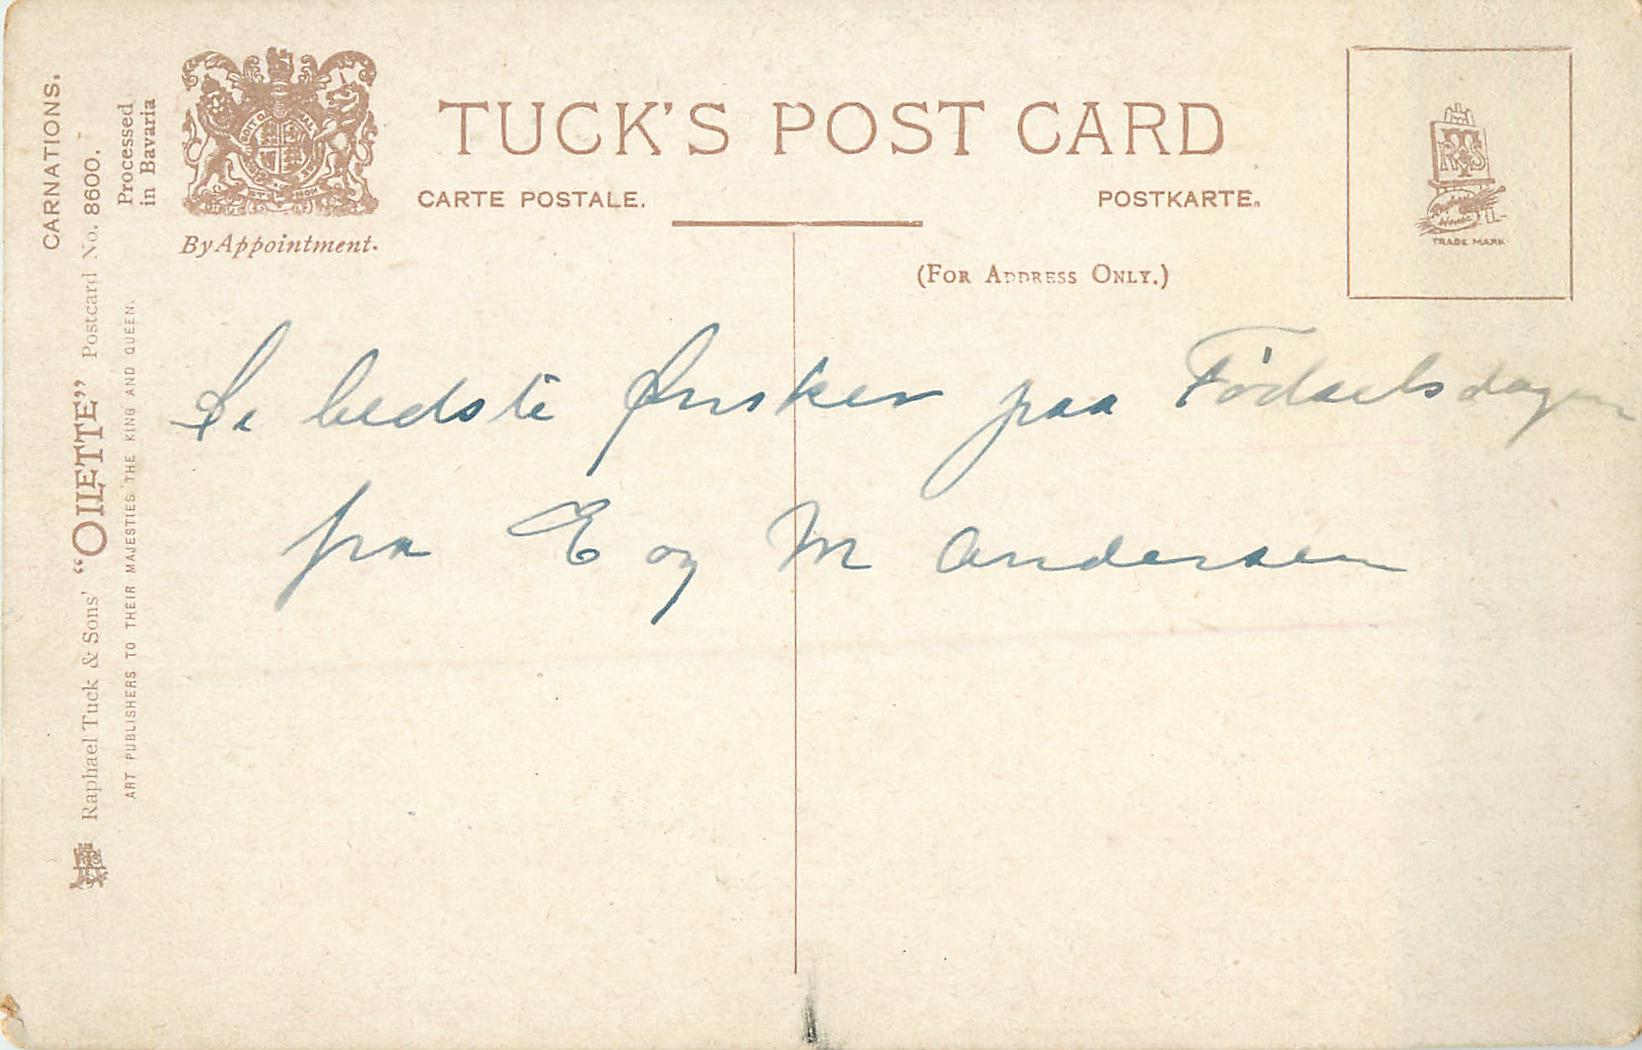 CARNATIONS.
Raphael Tuck & Sons' "OILETTE" Postcard No. 8600.
ART PUBLISHERS TO THEIR MAJESTIES THE KING AND QUEEN.
Processed
in Bavaria
By Appointment.
TUCK'S POST CARD
CARTE POSTALE.
POSTKARTE.
(FOR ADDRESS ONLY.)
RTS
TRADE MARK
De bedste Ønsker paa Fødselsdagen
fra E og M Andersen